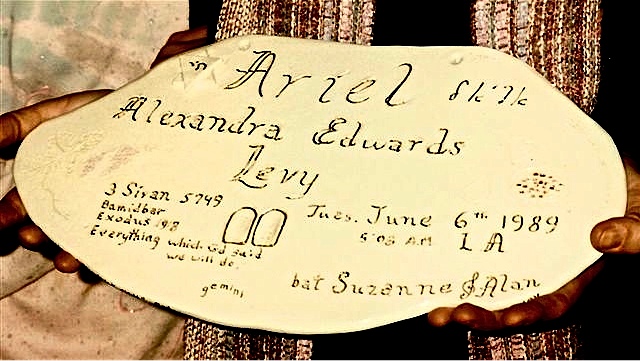 Ariel אריאל
Alexandra Edwards
Levy
3 Sivan 5749
Bamidbar
Exodus 19:8
Everything which God said
we will do.
Tues. June 6th 1989
5:03 A.M. LA
gemini
bat Suzanne & Alan